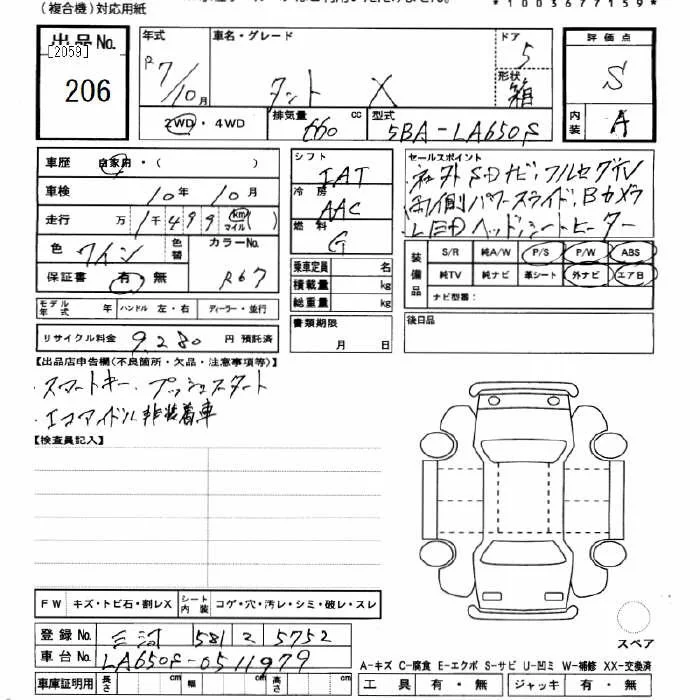 (複合機)対応用紙
*1003677159*
出品No. 年式 車名・グレード ドア 評価点
[2059]
206 R7/10月 タント X 5 形状 箱 S
2WD・4WD 排気量 660 cc 型式 5BA-LA650F 内装 A
車歴 自家用・( )
車検 10年10月
走行 万1千499 (km マイル)( )
色 ワイン 色替 カラーNo.
保証書 有・無 R67
モデル年式 年 ハンドル 左・右 ディーラー・並行
リサイクル料金 9,280円 預託済
シフト IAT
冷房 AAC
燃料 G
乗車定員 名
積載量 kg
総重量 kg
書類期限
月 日
セールスポイント
社外SDナビ・フルセグTV
両側パワースライド、Bカメラ
LEDヘッド、シートヒーター
装備品 S/R 純A/W P/S P/W ABS
純TV 純ナビ 革シート 外ナビ エア日
ナビ型番:
後日品
【出品店申告欄(不良箇所・欠品・注意事項等)】
・スマートキー プッシュスタート
・エコアイドル非装着車
【検査員記入】
FW キズ・トビ石・割レX シート内装 コゲ・穴・汚レ・シミ・破レ・スレ
登録No. 三河 581 2 5752
車台No. LA650F-0511979
車庫証明用 長さ cm 幅 cm 高さ cm
スペア
A-キズ C-腐食 E-エクボ S-サビ U-凹ミ W-補修 XX-交換済
工具 有・無 ジャッキ 有・無